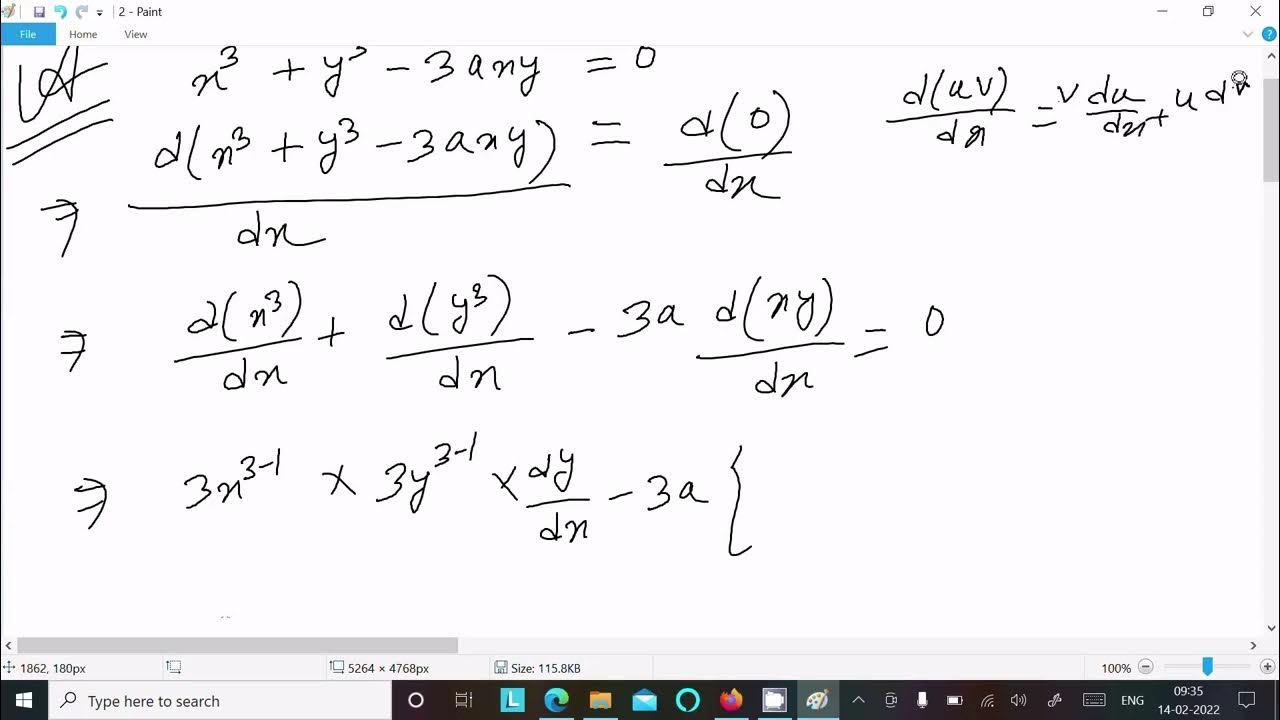 2 - Paint
File Home View
x³ + y³ - 3axy = 0
d(x³ + y³ - 3axy)/dx = d(0)/dx
d(uv)/dx = v du/dx + u dv
⇒ d(x³)/dx + d(y³)/dx - 3a d(xy)/dx = 0
⇒ 3x³⁻¹ × 3y³⁻¹ × dy/dx - 3a {
1862, 180px 5264 × 4768px Size: 115.8KB 100%
Type here to search ENG 09:35
14-02-2022